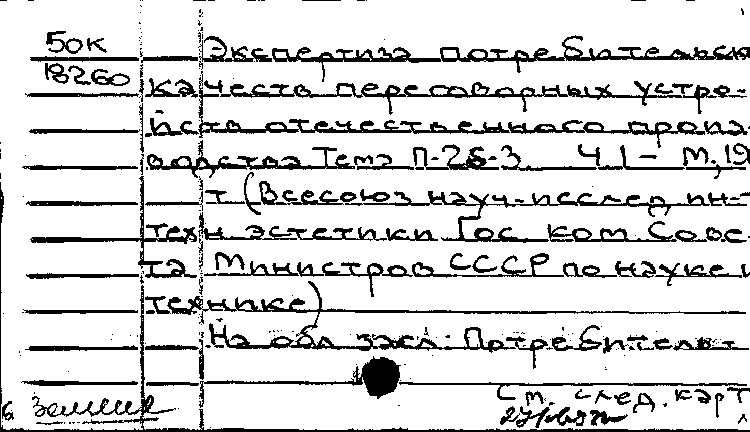 50К Экспертиза потребительск
18260 качеств переговорных устро-
йств отечественного произ-
водства Тема П-26-3 Ч 1 - М, 19
т (Всесоюз науч-исслед ин-т
техн эстетики Гос ком. Сове-
та Министров СССР по науке и
технике)
На обл загл: Потребительс
См. след. карт